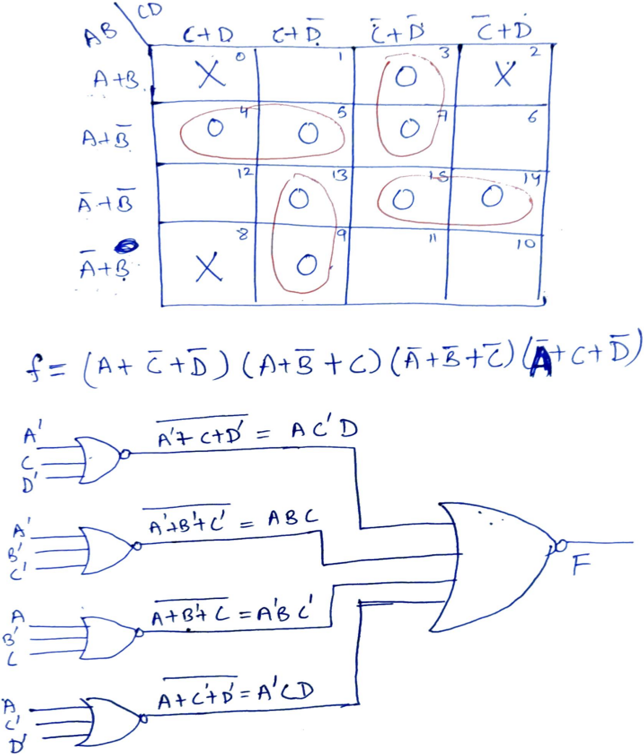 AB CD
C+D C+D̅ C̅+D̅ C̅+D
A+B X 0 1 0 3 X 2
A+B̅ 0 4 0 5 0 7 6
A̅+B̅ 12 0 13 0 15 0 14
A̅+B X 8 0 9 11 10
f = (A+C̅+D̅) (A+B̅+C) (A̅+B̅+C̅) (A̅+C+D̅)
A'
C
D'
A'+C+D' = AC'D
A'
B'
C'
A'+B'+C' = ABC
A
B'
C
A+B'+C = A'BC'
A
C'
D'
A+C'+D' = A'CD
F